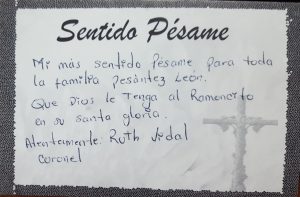 Sentido Pésame
Mi más sentido pésame para toda
la familia pesántez León.
Que Dios le Tenga al Romancito
en su santa gloria.
Atentamente. Ruth Vidal
Coronel